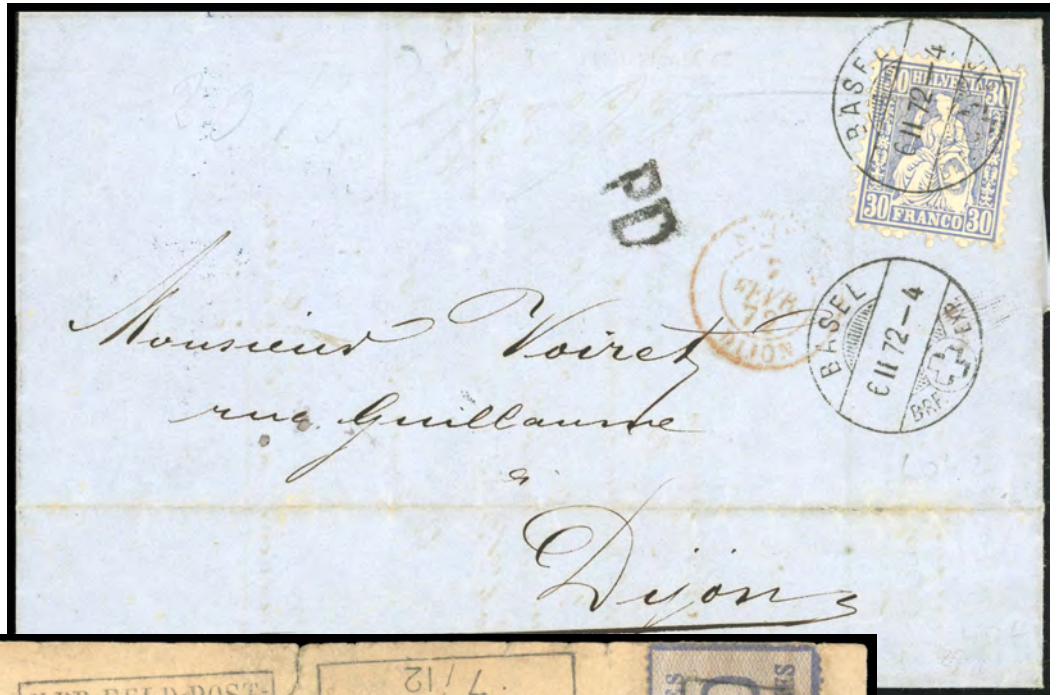 BASEL
6 II 72 – 4
30 HELVETIA 30
30 FRANCO 30
PD
FEVR
72
DIJON
BASEL
6 II 72 – 4
BRF. EXP.
Monsieur Voiret
rue Guillaume
à
Dijon
7/12